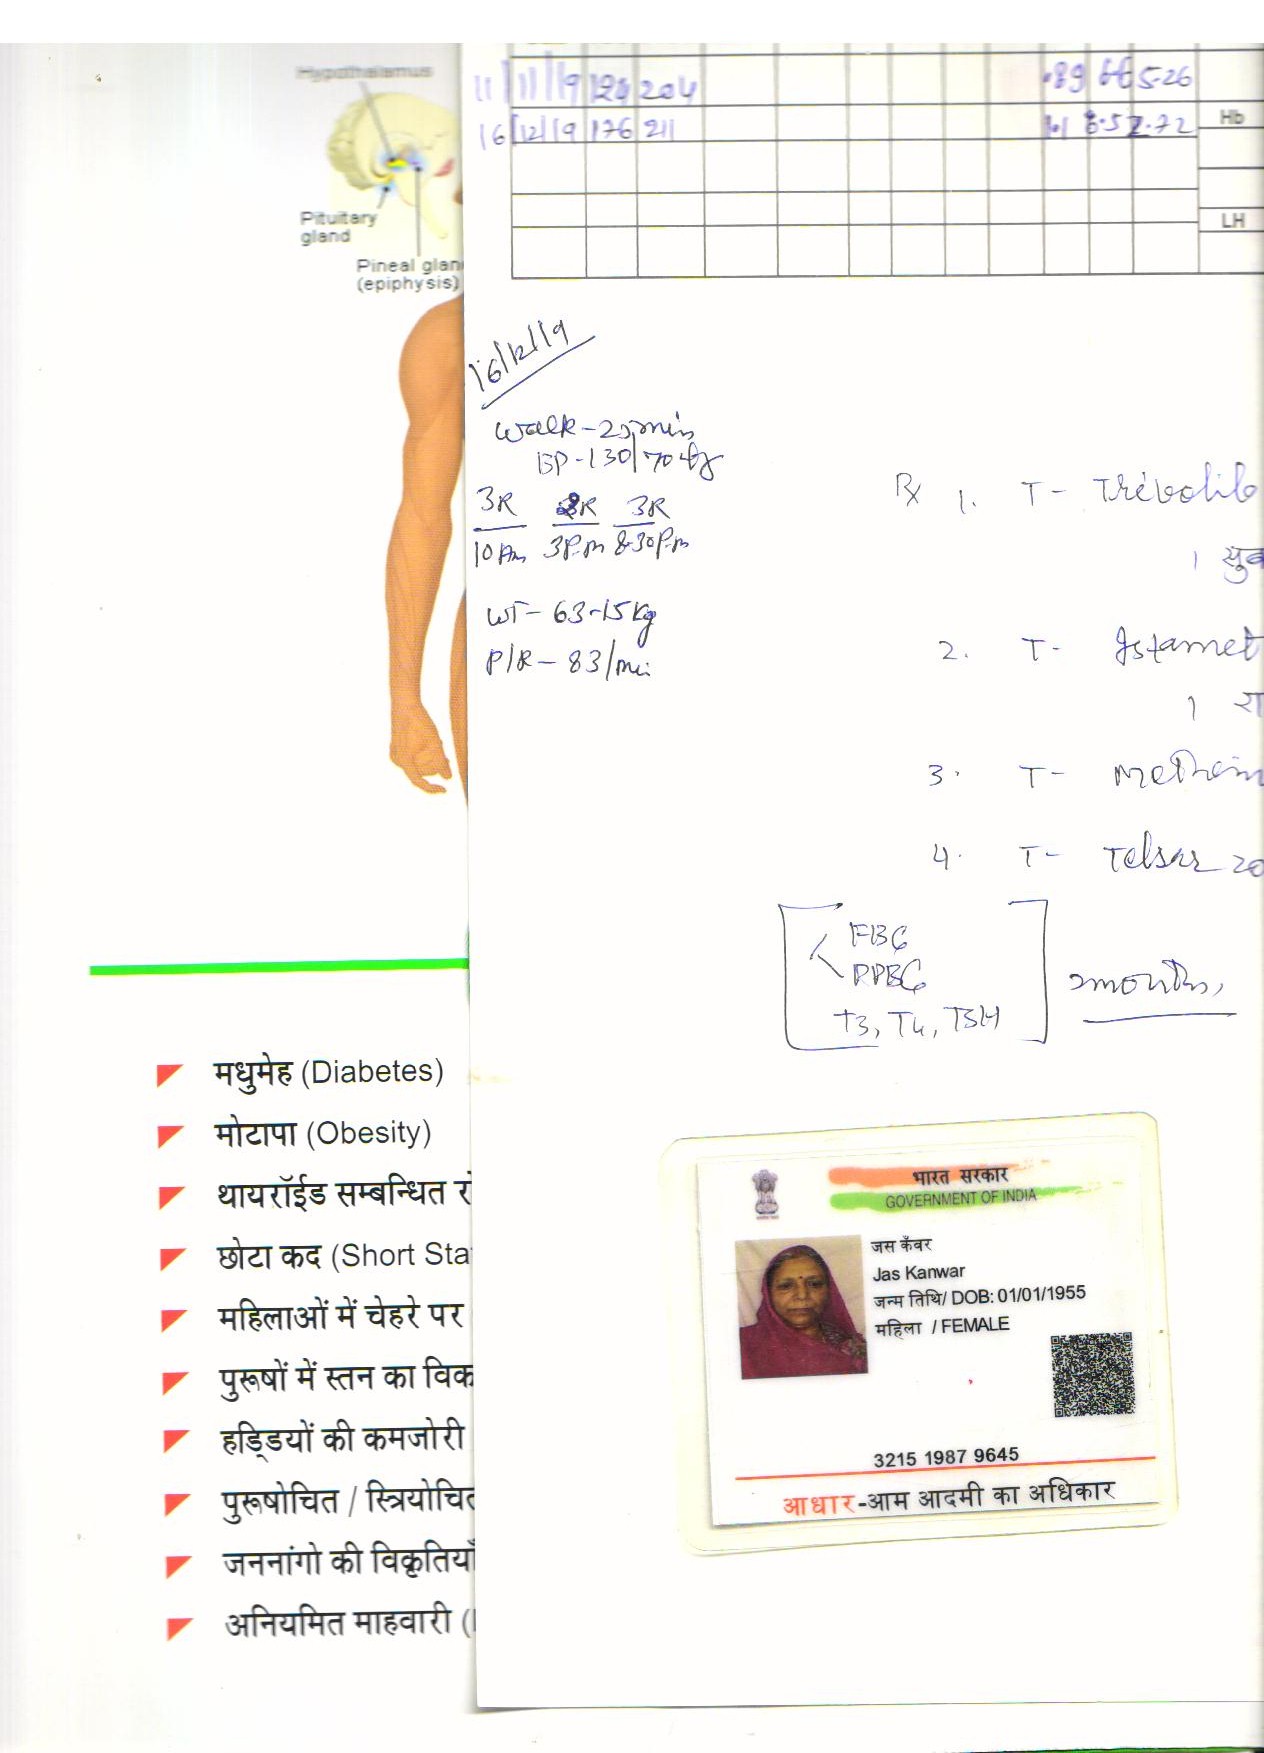 Hypothalamus
Pituitary
gland
Pineal glan
(epiphysis)
11/11/19 204 .89 5.26
16/12/19 176 211 8.5
Hb
LH
16/12/19
Walk - 25 min
BP - 130/70
3R 3R
10 Am 3P.m 8-30P.m
WT - 63-15 Kg
P/R - 83/min
Rx 1. T- Trivolib
1 सुब
2. T- Istamet
1 रा
3. T- Methim
4. T- Telsar 20
FBG
PPBG
T3, T4, TSH
2months,
मधुमेह (Diabetes)
मोटापा (Obesity)
थायरॉईड सम्बन्धित रो
छोटा कद (Short Sta
महिलाओं में चेहरे पर
पुरूषों में स्तन का विक
हड्डियों की कमजोरी
पुरूषोचित / स्त्रियोचित
जननांगो की विकृतियाँ
अनियमित माहवारी (
भारत सरकार
GOVERNMENT OF INDIA
जस कँवर
Jas Kanwar
जन्म तिथि/ DOB: 01/01/1955
महिला / FEMALE
3215 1987 9645
आधार-आम आदमी का अधिकार